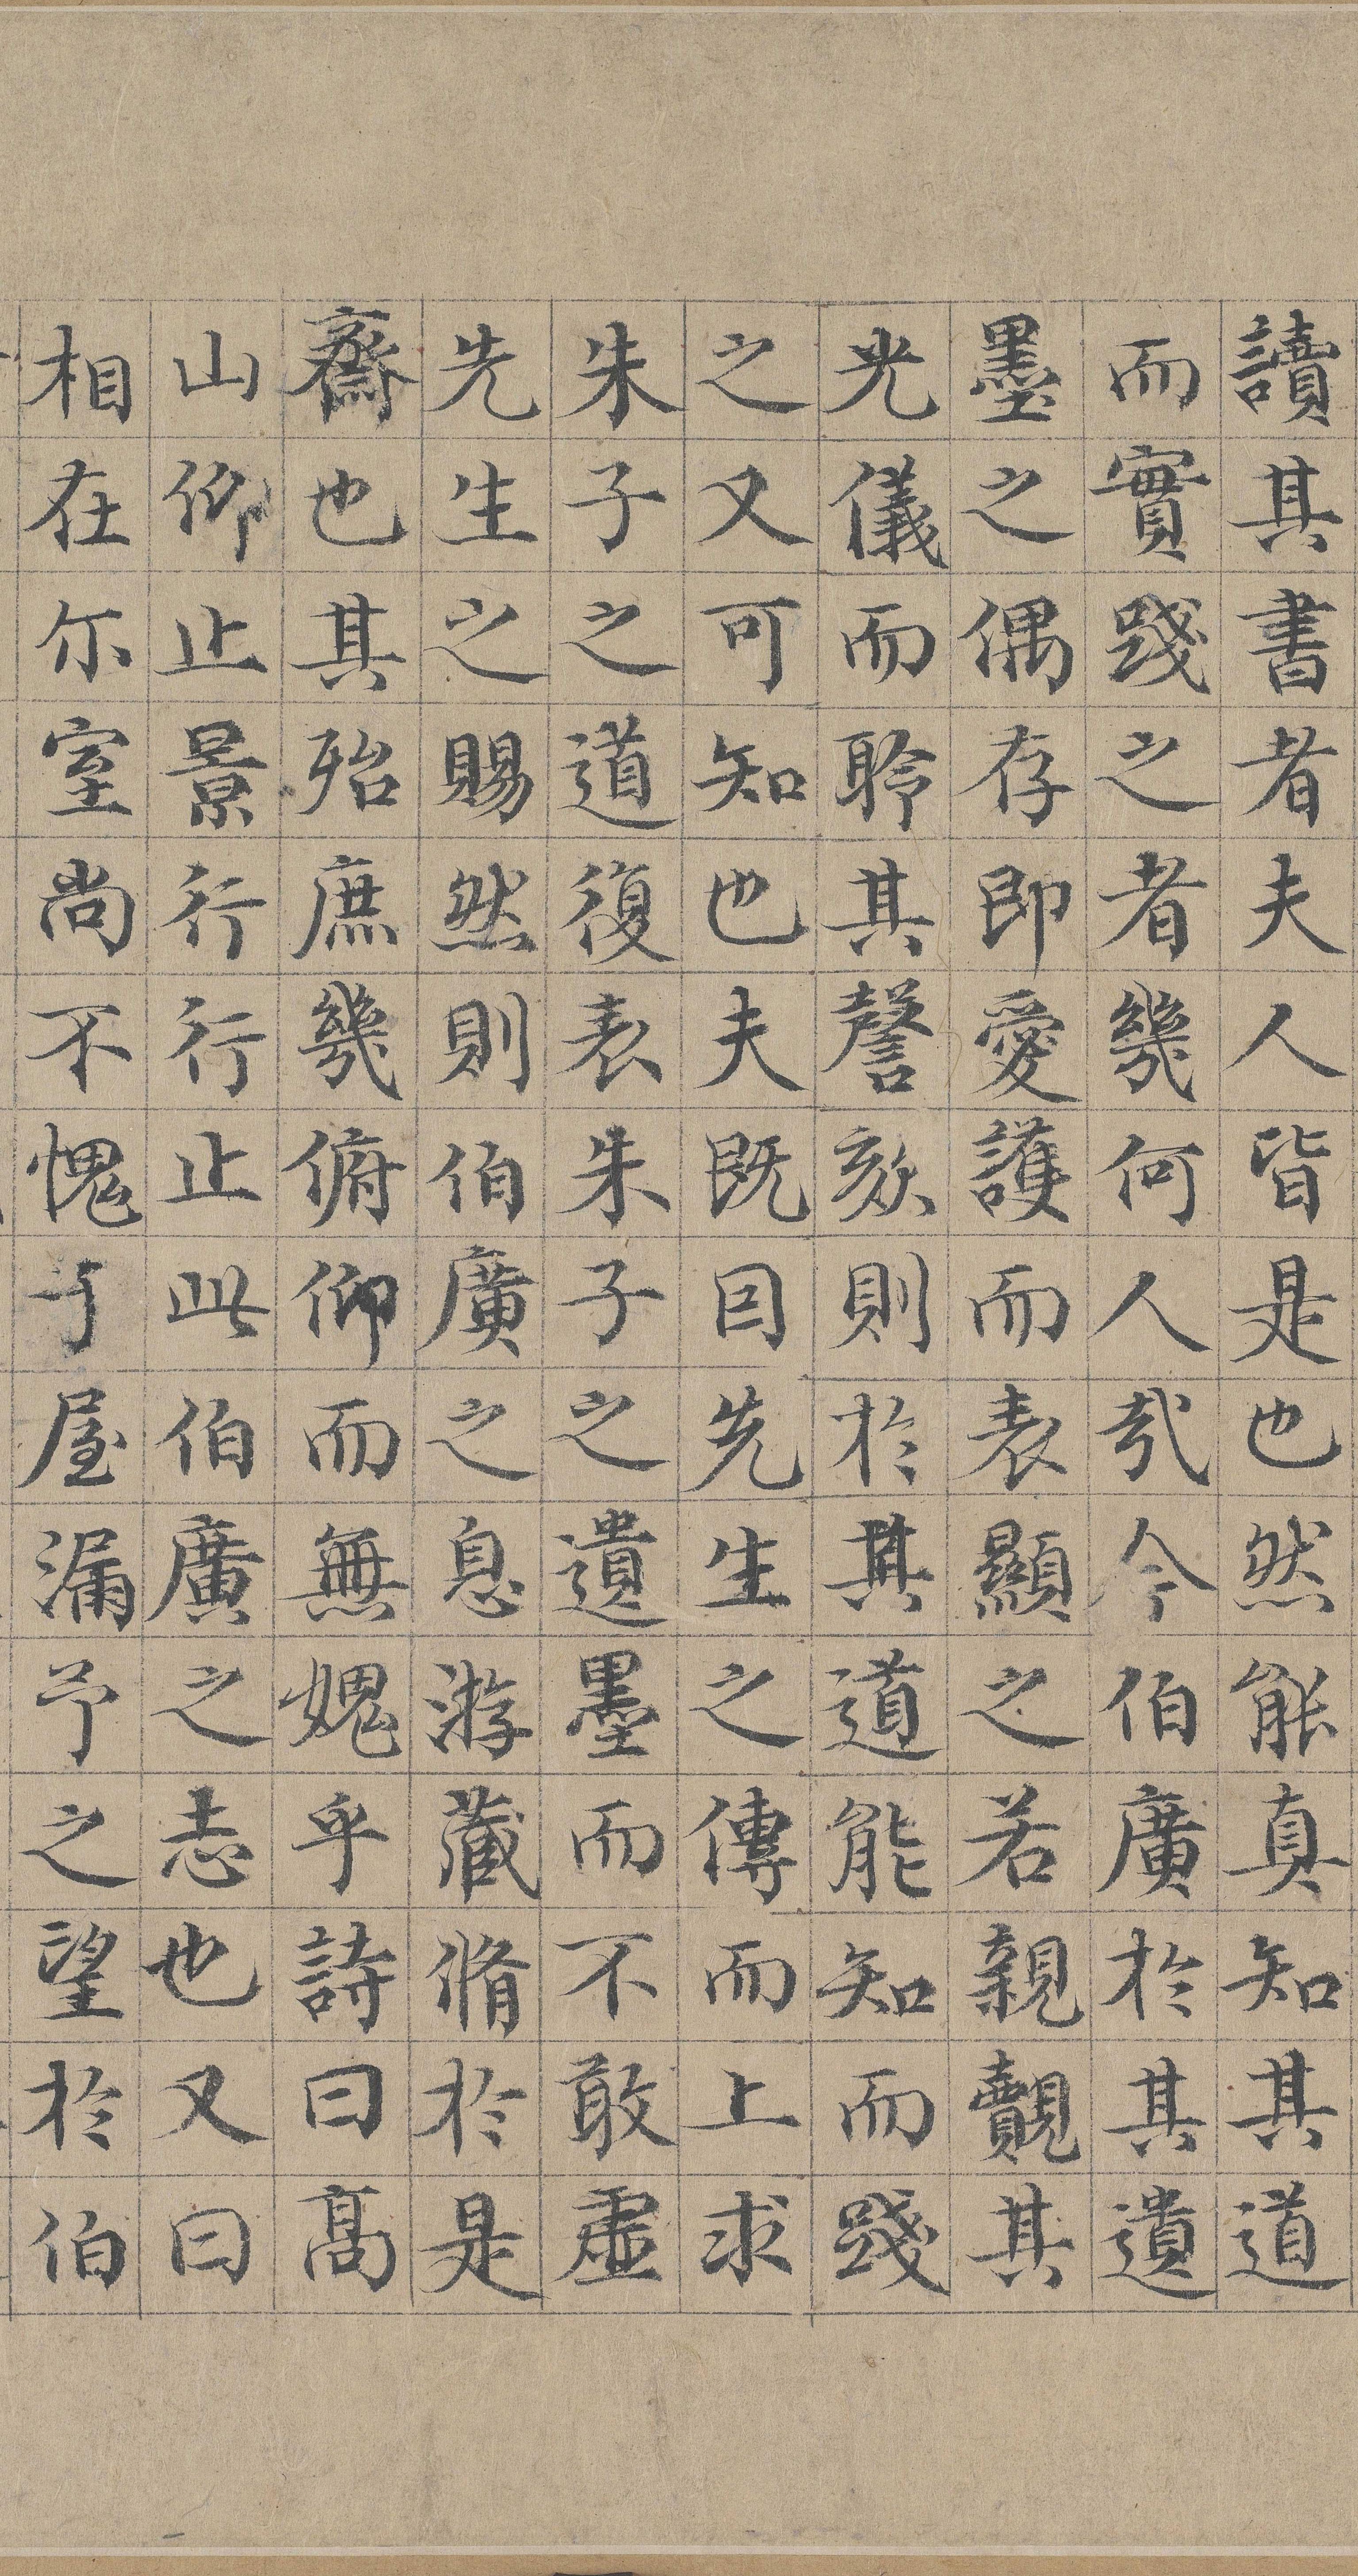 讀其書者夫人皆是也然能真知其道
而實踐之者幾何人哉今伯廣於其遺
墨之偶存即愛護而表顯之若親覿其
光儀而聆其謦欬則於其道能知而踐
之又可知也夫既因先生之傳而上求
朱子之道復表朱子之遺墨而不敢虛
先生之賜然則伯廣之息游藏脩於是
齋也其殆庶幾俯仰而無媿乎詩曰高
山仰止景行行止此伯廣之志也又曰
相在尔室尚不愧于屋漏予之望於伯